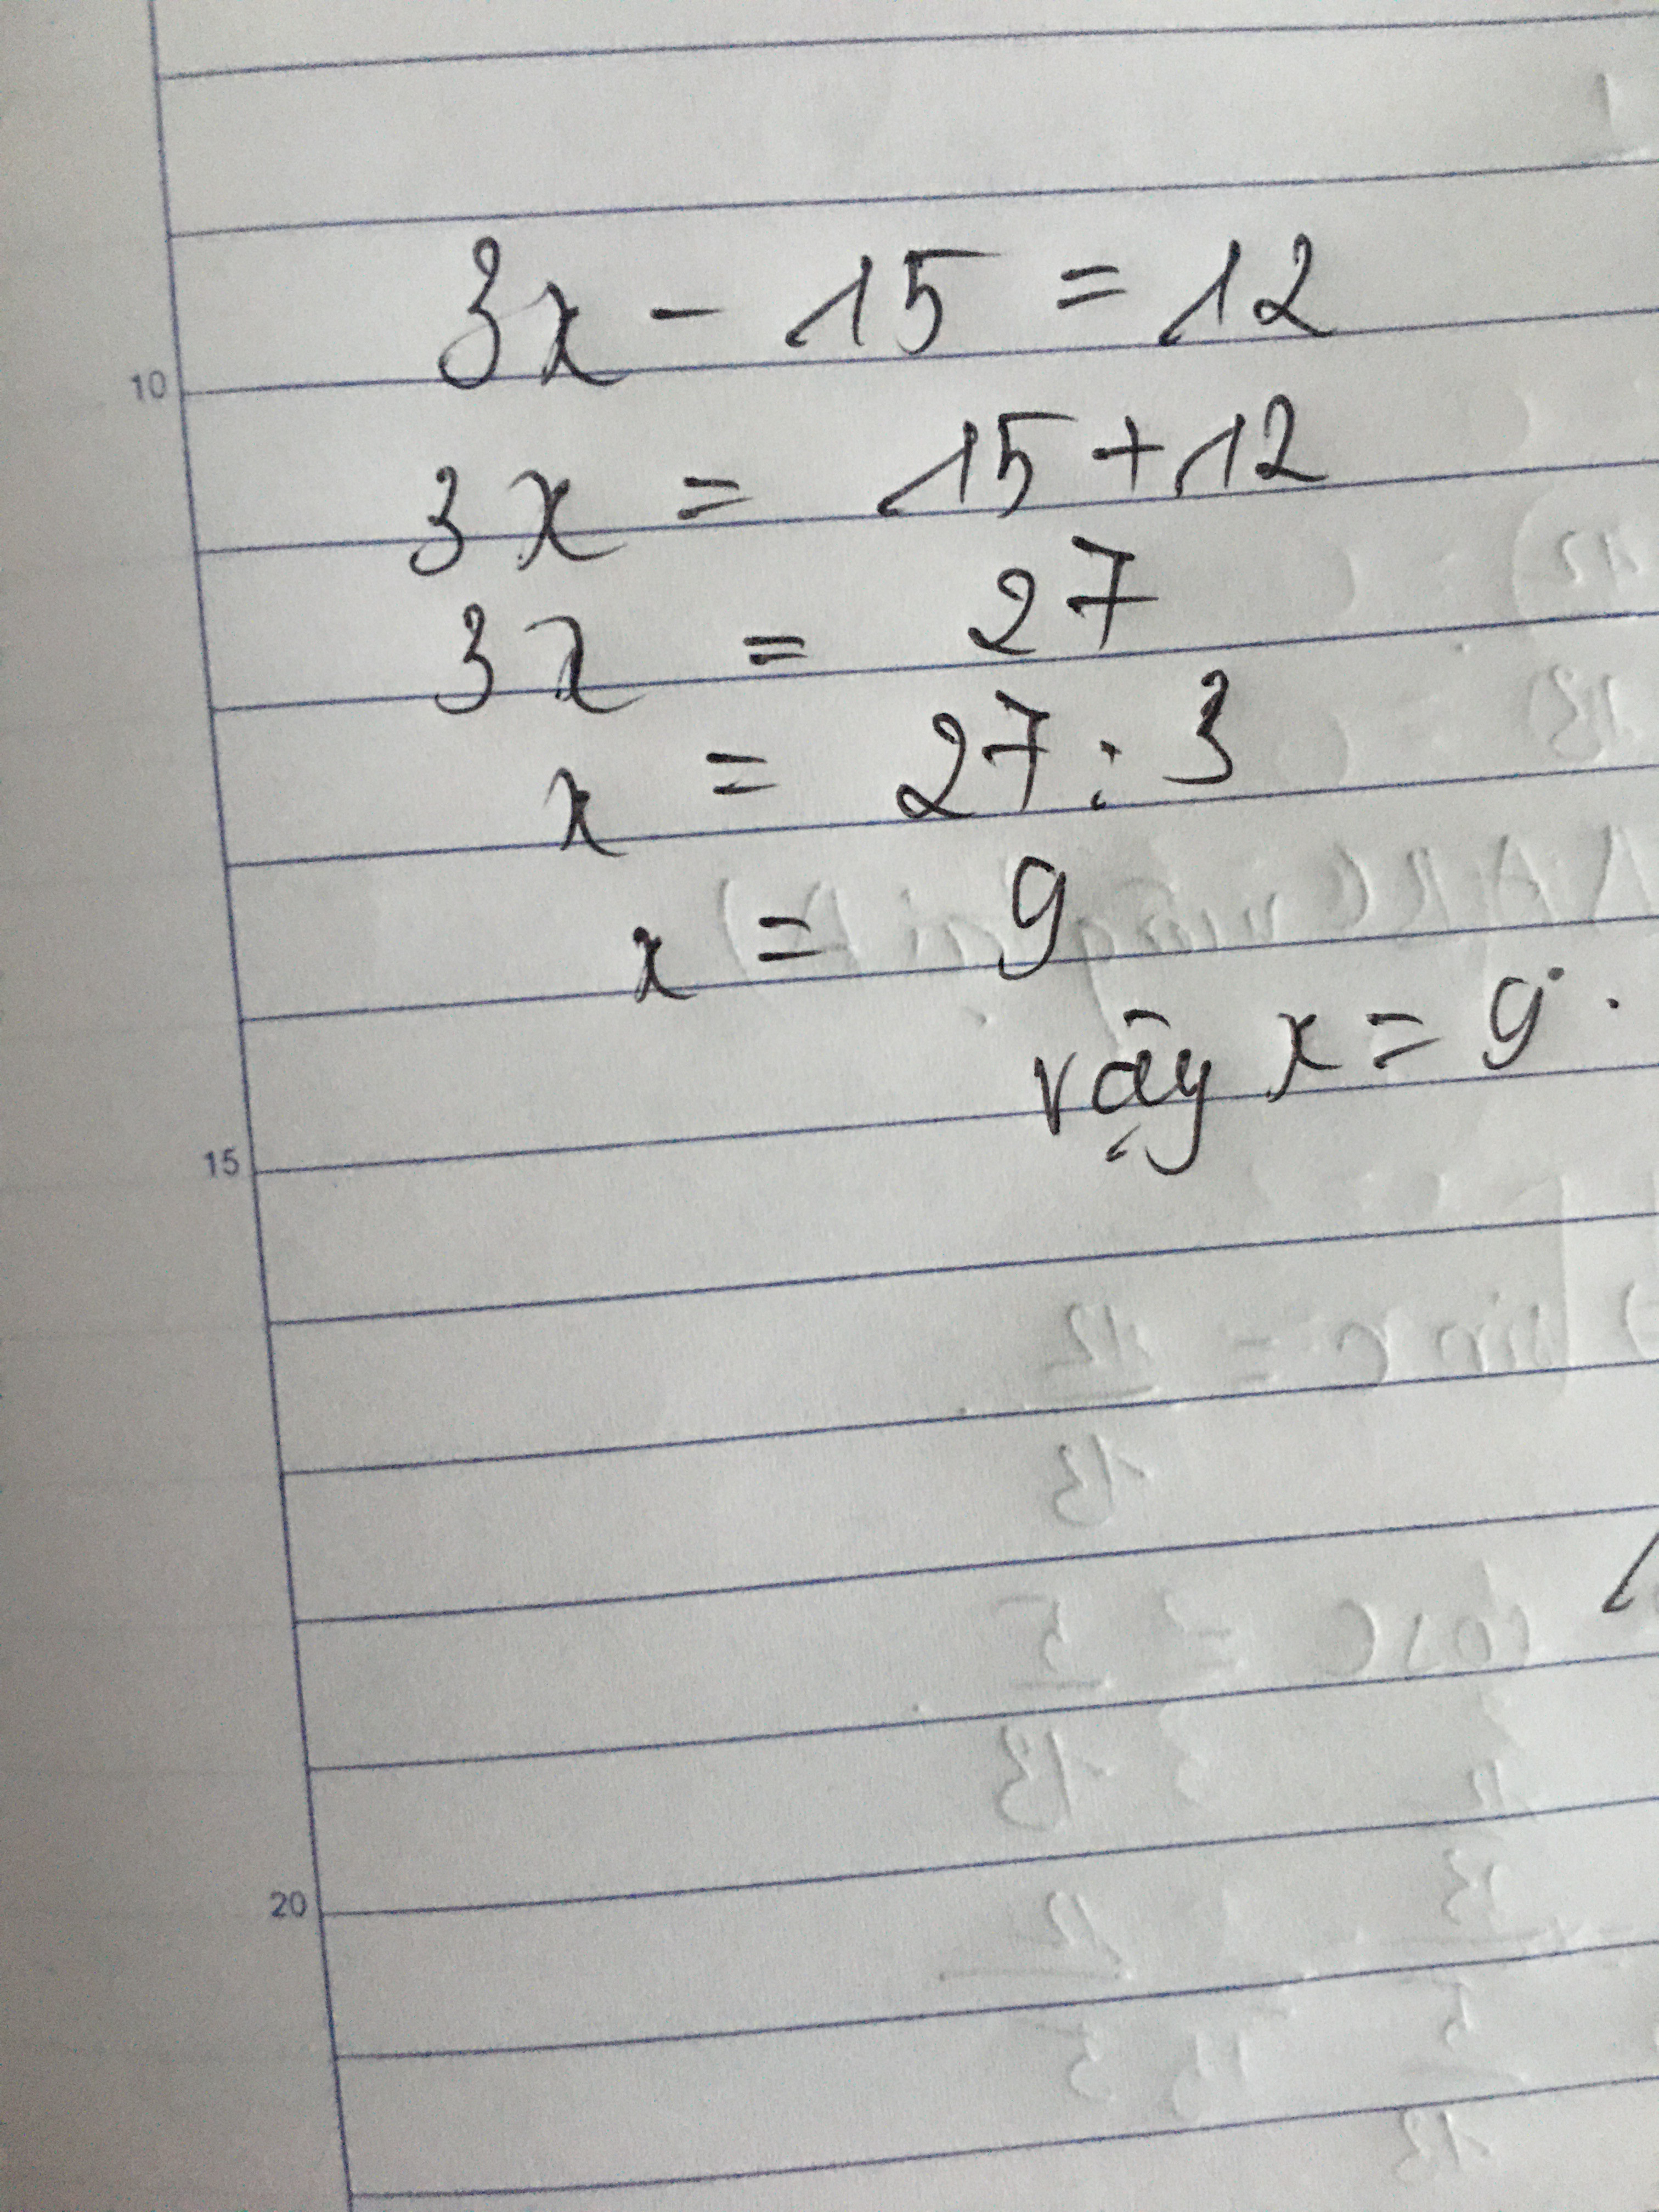 3x - 15 = 12
10
3x = 15 + 12
3x = 27
x = 27 : 3
x = 9
vậy x = 9.
15
20